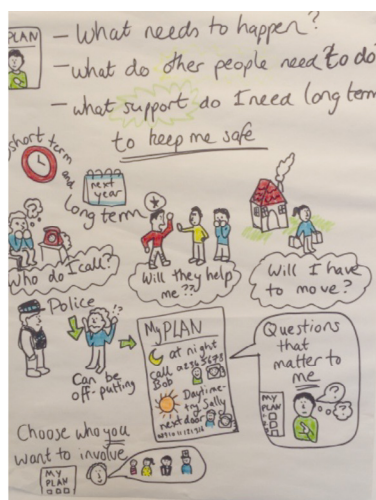 PLAN
- What needs to happen?
- What do other people need to do
- what support do I need long term
to keep me safe
short term
and
long term
next
year
Who do I call?
Will they help
me??
Will I have
to move?
Police
!?
Can be
off-putting
My PLAN
at night
call
Bob
Daytime-
try Sally
next door
Questions
that
matter to
me
MY
PLAN
Choose who you
want to involve
MY
PLAN